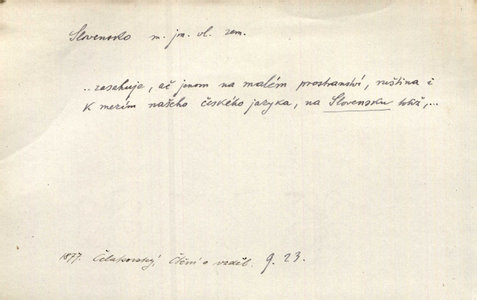 Slovensko n. jm. vl. zem.
..zasahuje, ač jenom na malém prostranství, ruština i
k mezím našeho českého jazyka, na Slovensku totiž,...
1877. Čelakovský, Čtení o vzděl. 9. 23.